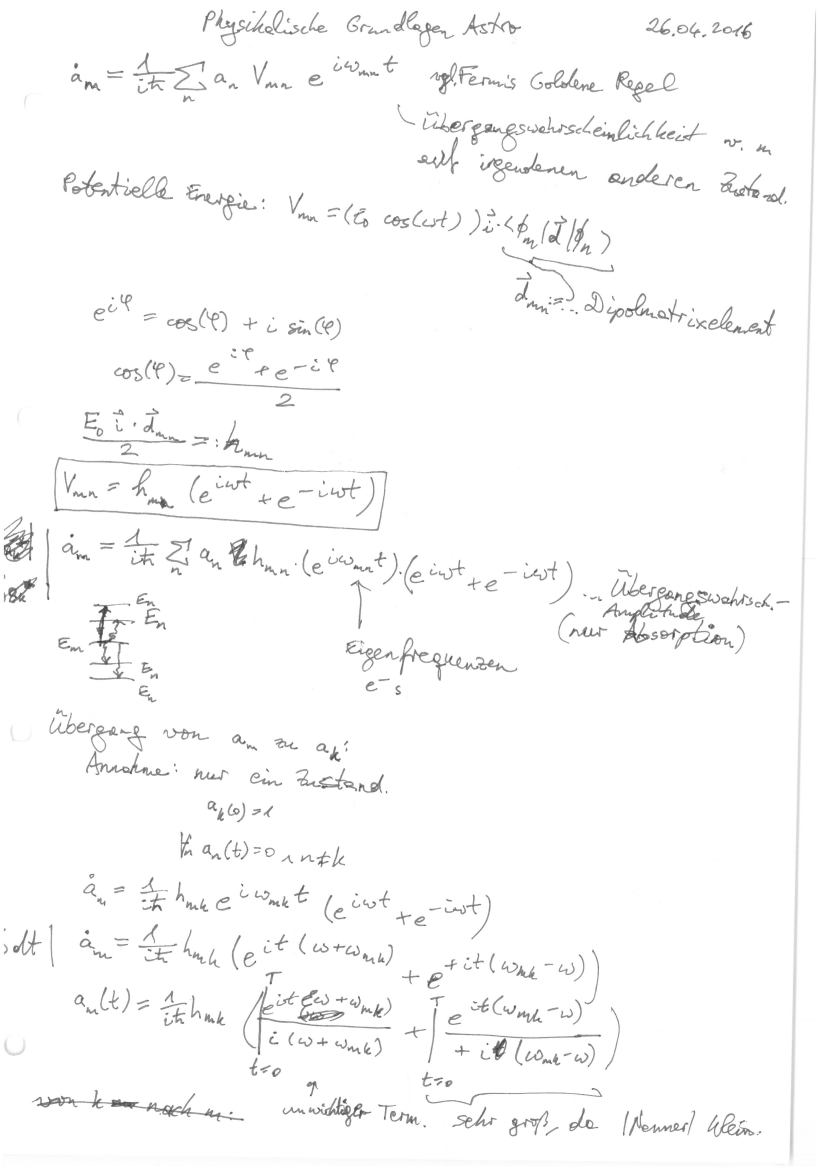 Physikalische Grundlagen Astro 26.04.2016
ȧ_m = 1/(iħ) ∑_n a_n V_mn e^{iω_mn t} vgl. Fermis Goldene Regel
Übergangswahrscheinlichkeit v. m
auf irgendeinen anderen Zustand.
Potentielle Energie: V_mn = (E_0 cos(ωt)) i⃗ · <ϕ_m|d⃗|ϕ_n>
d⃗_mn := ... Dipolmatrixelement
e^{iφ} = cos(φ) + i sin(φ)
cos(φ) = (e^{iφ} + e^{-iφ})/2
(E_0 i⃗ · d⃗_mn)/2 =: h_mn
V_mn = h_mn (e^{iωt} + e^{-iωt})
ȧ_m = 1/(iħ) ∑_n a_n h_mn · (e^{iω_mn t}) · (e^{iωt} + e^{-iωt}) ... Übergangswahrsch.-
Amplitude
(nur Absorption)
E_n
E_n
E_m
E_n
E_n
Eigenfrequenzen
e^-s
Übergang von a_m zu a_k:
Annahme: nur ein Zustand.
a_k(0) = 1
∀n a_n(t) = 0 ∧ n ≠ k
ȧ_m = 1/(iħ) h_mk e^{iω_mk t} (e^{iωt} + e^{-iωt})
∫dt | ȧ_m = 1/(iħ) h_mk (e^{it(ω+ω_mk)} + e^{+it(ω_mk-ω)})
a_m(t) = 1/(iħ) h_mk (|_{t=0}^{T} e^{it(ω+ω_mk)}/(i(ω+ω_mk)) + |_{t=0}^{T} e^{it(ω_mk-ω)}/(+i(ω_mk-ω)))
von k nach m:
unwichtiger Term. sehr groß, da |Nenner| klein.